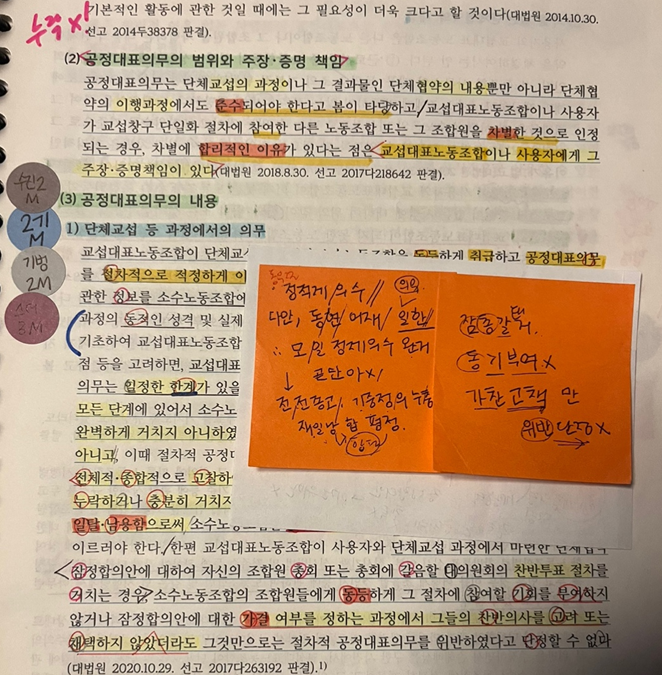 기본적인 활동에 관한 것일 때에는 그 필요성이 더욱 크다고 할 것이다(대법원 2014.10.30.
누적 X!
선고 2014두38378 판결).
(2) 공정대표의무의 범위와 주장·증명 책임
공정대표의무는 단체교섭의 과정이나 그 결과물인 단체협약의 내용뿐만 아니라 단체협
약의 이행과정에서도 준수되어야 한다고 봄이 타당하고/교섭대표노동조합이나 사용자
가 교섭창구 단일화 절차에 참여한 다른 노동조합 또는 그 조합원을 차별한 것으로 인정
되는 경우, 차별에 합리적인 이유가 있다는 점은 교섭대표노동조합이나 사용자에게 그
주장·증명책임이 있다(대법원 2018.8.30. 선고 2017다218642 판결).
2M
(3) 공정대표의무의 내용
2기
M
1) 단체교섭 등 과정에서의 의무
기범
2M
교섭대표노동조합이 단체교 동등하게 취급하고 공정대표의무
를 절차적으로 적정하게 이
관한 정보를 소수노동조합에
3M
과정의 동적인 성격 및 실제
기초하여 교섭대표노동조합
점 등을 고려하면, 교섭대표
의무는 일정한 한계가 있을
모든 단계에 있어서 소수노
완벽하게 거치지 아니하였
아니고, 이때 절차적 공정대
전체적·종합적으로 고찰하
누락하거나 충분히 거치지
일탈·남용함으로써 소수노동조합
이르러야 한다./한편 교섭대표노동조합이 사용자와 단체교섭 과정에서 마련한 단체협약
잠정합의안에 대하여 자신의 조합원 총회 또는 총회에 갈음할 대의원회의 찬반투표 절차를
거치는 경우, 소수노동조합의 조합원들에게 동등하게 그 절차에 참여할 기회를 부여하지
않거나 잠정합의안에 대한 가결 여부를 정하는 과정에서 그들의 찬반의사를 고려 또는
채택하지 않았더라도 그것만으로는 절차적 공정대표의무를 위반하였다고 단정할 수 없다
(대법원 2020.10.29. 선고 2017다263192 판결).1)
동적
정적제/의수//
다만, 동현/어재/일한//
∴ 모/일 정제의수 완거
↓ 곧단아X/
전/전종고/ 기충정의누충
재일남 합 평정.
잠총갈 거.
동기부여X
가찬고책 만
위반 단정X